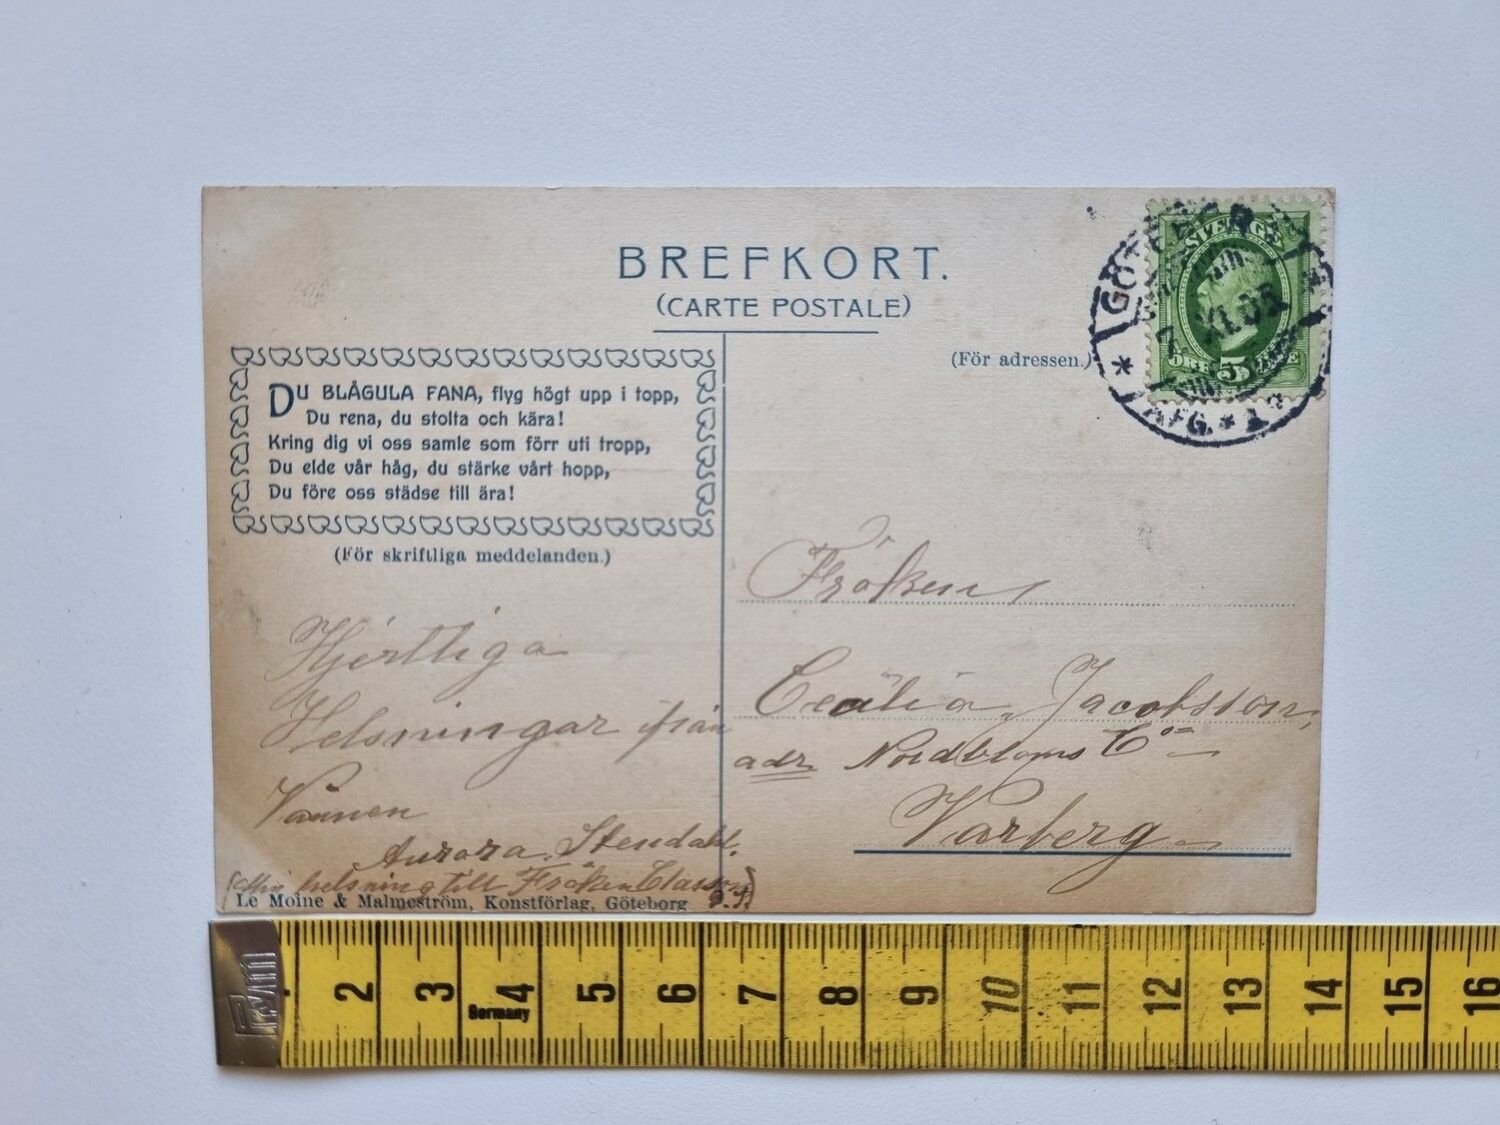 BREFKORT.
(CARTE POSTALE)
SVERIGE
ÖRE 5 ÖRE
GÖTEBORG
7 XI.05
* AFG. * 1
(För adressen.)
DU BLÅGULA FANA, flyg högt upp i topp,
Du rena, du stolta och kära!
Kring dig vi oss samle som förr uti tropp,
Du elde vår håg, du stärke vårt hopp,
Du före oss städse till ära!
(För skriftliga meddelanden.)
Hjertliga
Helsningar från
Vännen
Aurora Stendahl.
(Min helsning till Fröken Classon)
Le Moine & Malmeström, Konstförlag, Göteborg
Fröken
Cecilia Jacobsson,
adr. Nordbloms Co
Varberg
2 3 4 5 6 7 8 9 10 11 12 13 14 15 16
Germany